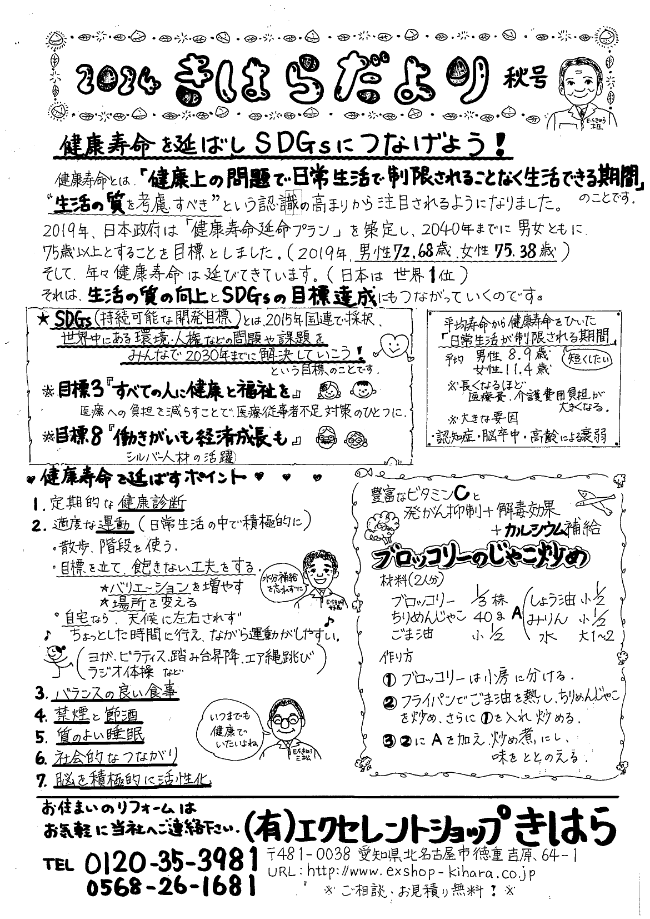 2024 きはらだより 秋号
健康寿命を延ばしSDGsにつなげよう!
健康寿命とは、「健康上の問題で日常生活で制限されることなく生活できる期間」
のことです。
"生活の質を考慮すべき"という認識の高まりから注目されるようになりました。
2019年、日本政府は「健康寿命延命プラン」を策定し、2040年までに男女ともに、
75歳以上とすることを目標としました。(2019年、男性72.68歳、女性75.38歳)
そして、年々健康寿命は延びてきています。(日本は世界1位)
それは、生活の質の向上とSDGsの目標達成にもつながっていくのです。
★SDGs(持続可能な開発目標)とは、2015年国連で採択、
世界中にある環境・人権などの問題や課題を
みんなで2030年までに解決していこう!
という目標のことです。
※目標3『すべての人に健康と福祉を』
医療への負担を減らすことで、医療従事者不足対策のひとつに。
※目標8『働きがいも経済成長も』
シルバー人材の活躍
平均寿命から健康寿命をひいた
「日常生活が制限される期間」
平均 男性 8.9歳
女性 11.4歳
短くしたい
※長くなるほど
医療費、介護費用負担が
大きくなる。
※大きな要因
・認知症・脳卒中・高齢による衰弱
♥健康寿命を延ばすポイント♥ ♥ ♥
1. 定期的な健康診断
2. 適度な運動(日常生活の中で積極的に)
・散歩、階段を使う.
・目標を立て、飽きない工夫をする.
★バリエーションを増やす
★場所を変える
水分補給を忘れずに
"自宅なら、天候に左右されず"
♪ちょっとした時間に行え、ながら運動がしやすい。♪
(ヨガ、ピラティス、踏み台昇降、エア縄跳び)
ラジオ体操 など
3. バランスの良い食事
4. 禁煙と節酒
5. 質のよい睡眠
6. 社会的なつながり
7. 脳を積極的に活性化
いつまでも
健康で
いたいよね
豊富なビタミンCと
発がん抑制+解毒効果
+カルシウム補給
ブロッコリーのじゃこ炒め
材料(2人分)
ブロッコリー 1/3株
ちりめんじゃこ 40g
ごま油 小1/2
A
しょう油 小1/2
みりん 小1/2
水 大1~2
作り方
①ブロッコリーは小房に分ける.
②フライパンでごま油を熱し、ちりめんじゃこ
を炒め、さらに①を入れ炒める.
③②にAを加え、炒め煮にし、
味をととのえる.
お住まいのリフォームは
お気軽に当社へご連絡下さい.
(有)エクセレントショップきはら
TEL 0120-35-3981
0568-26-1681
〒481-0038 愛知県北名古屋市徳重吉原、64-1
URL: http://www.exshop-kihara.co.jp
※ご相談・お見積り無料!※